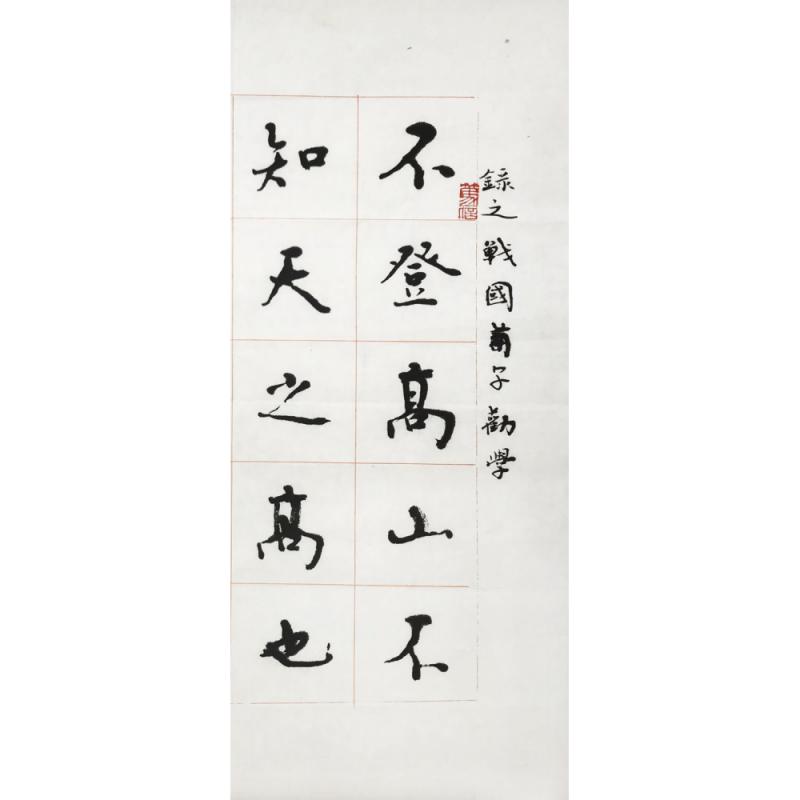 錄之戰國荀子勸學
不登高山不
知天之高也